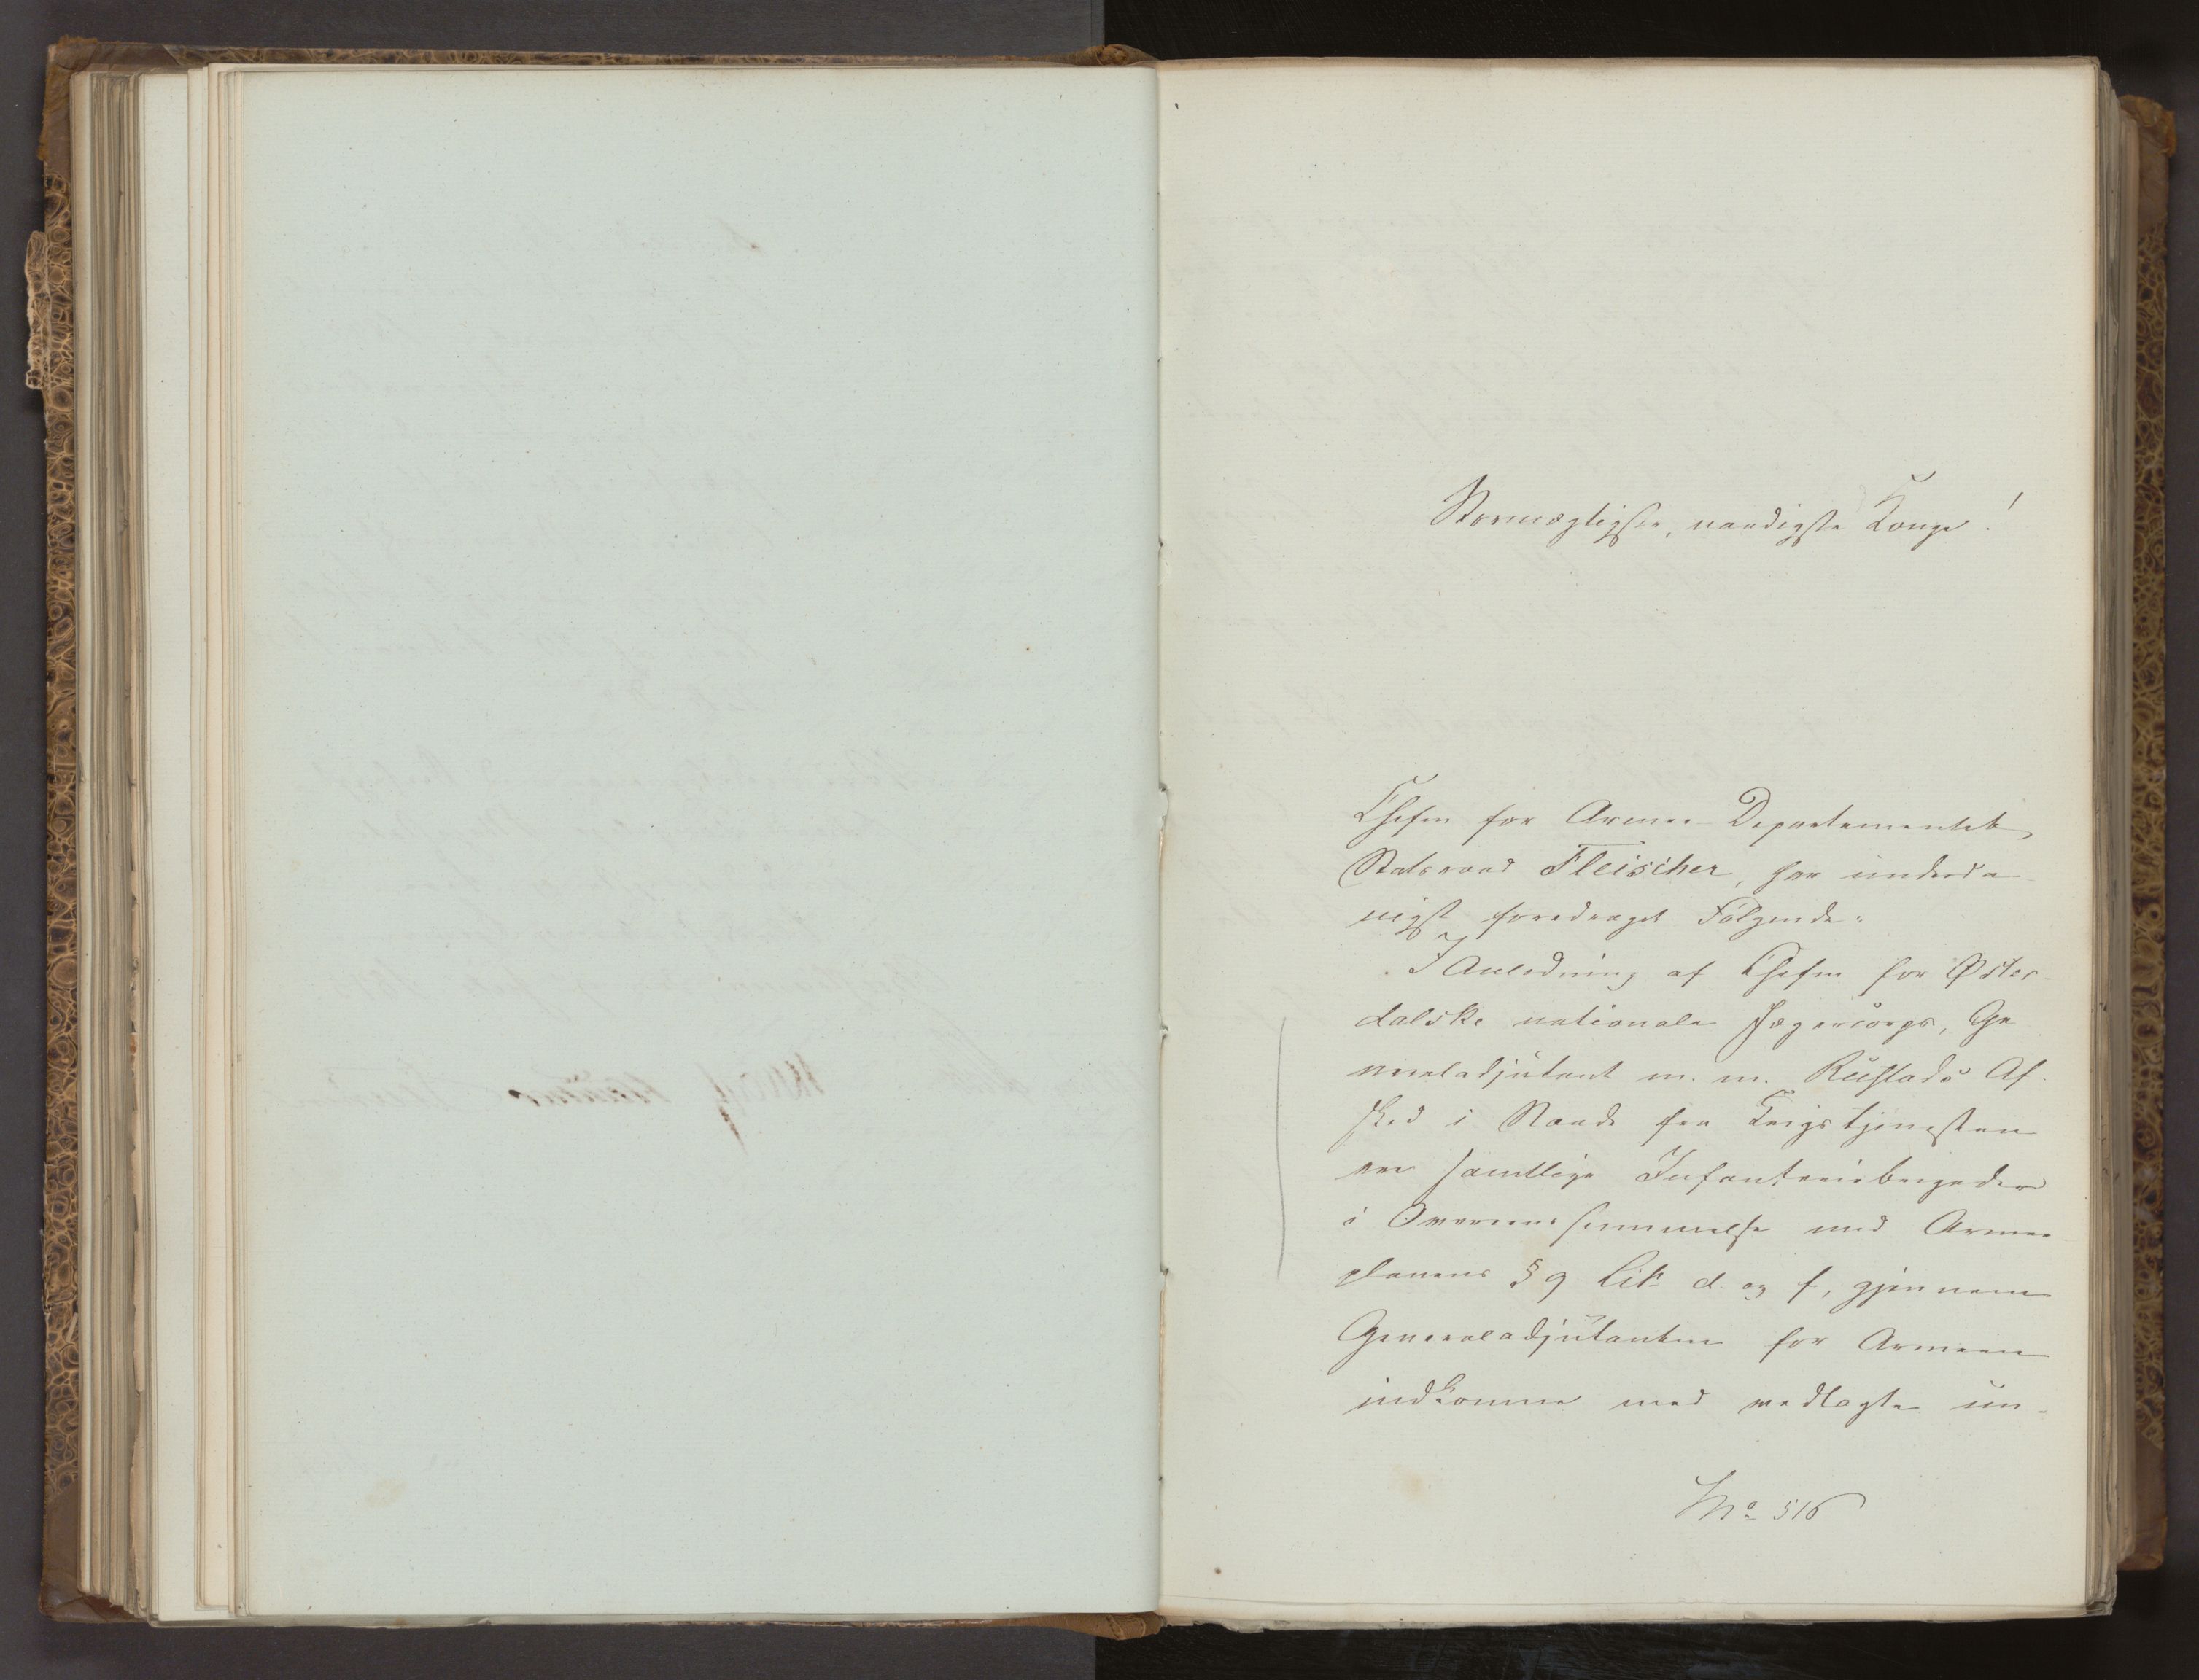 Stormægtigste, naadigste Konge!
Chefen for Armee-Departementet,
Statsraad Fleischer, har underda-
nigst foredraget Følgende:
"I Anledning af Chefen for Øster-
dalske nationale Jægercorps, Ge-
neraladjutant m. m. Rustads Af-
sked i Naade fra Krigstjenesten
ere samtlige Infanteriebrigader
i Overeensstemmelse med Armee-
planens § 9 Litr d. og f, gjennem
Generaladjutanten for Armeen
indkomne med vedlagte un-
No 516